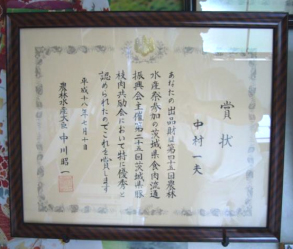 賞状
中村一夫
あなたの出品財は第四十五回農林
水産祭参加の茨城県食肉流通
振興会主催第二十五回茨城県豚
枝肉共励会において特に優秀と
認められたのでこれを賞します
平成十八年七月十日
農林水産大臣 中川昭一